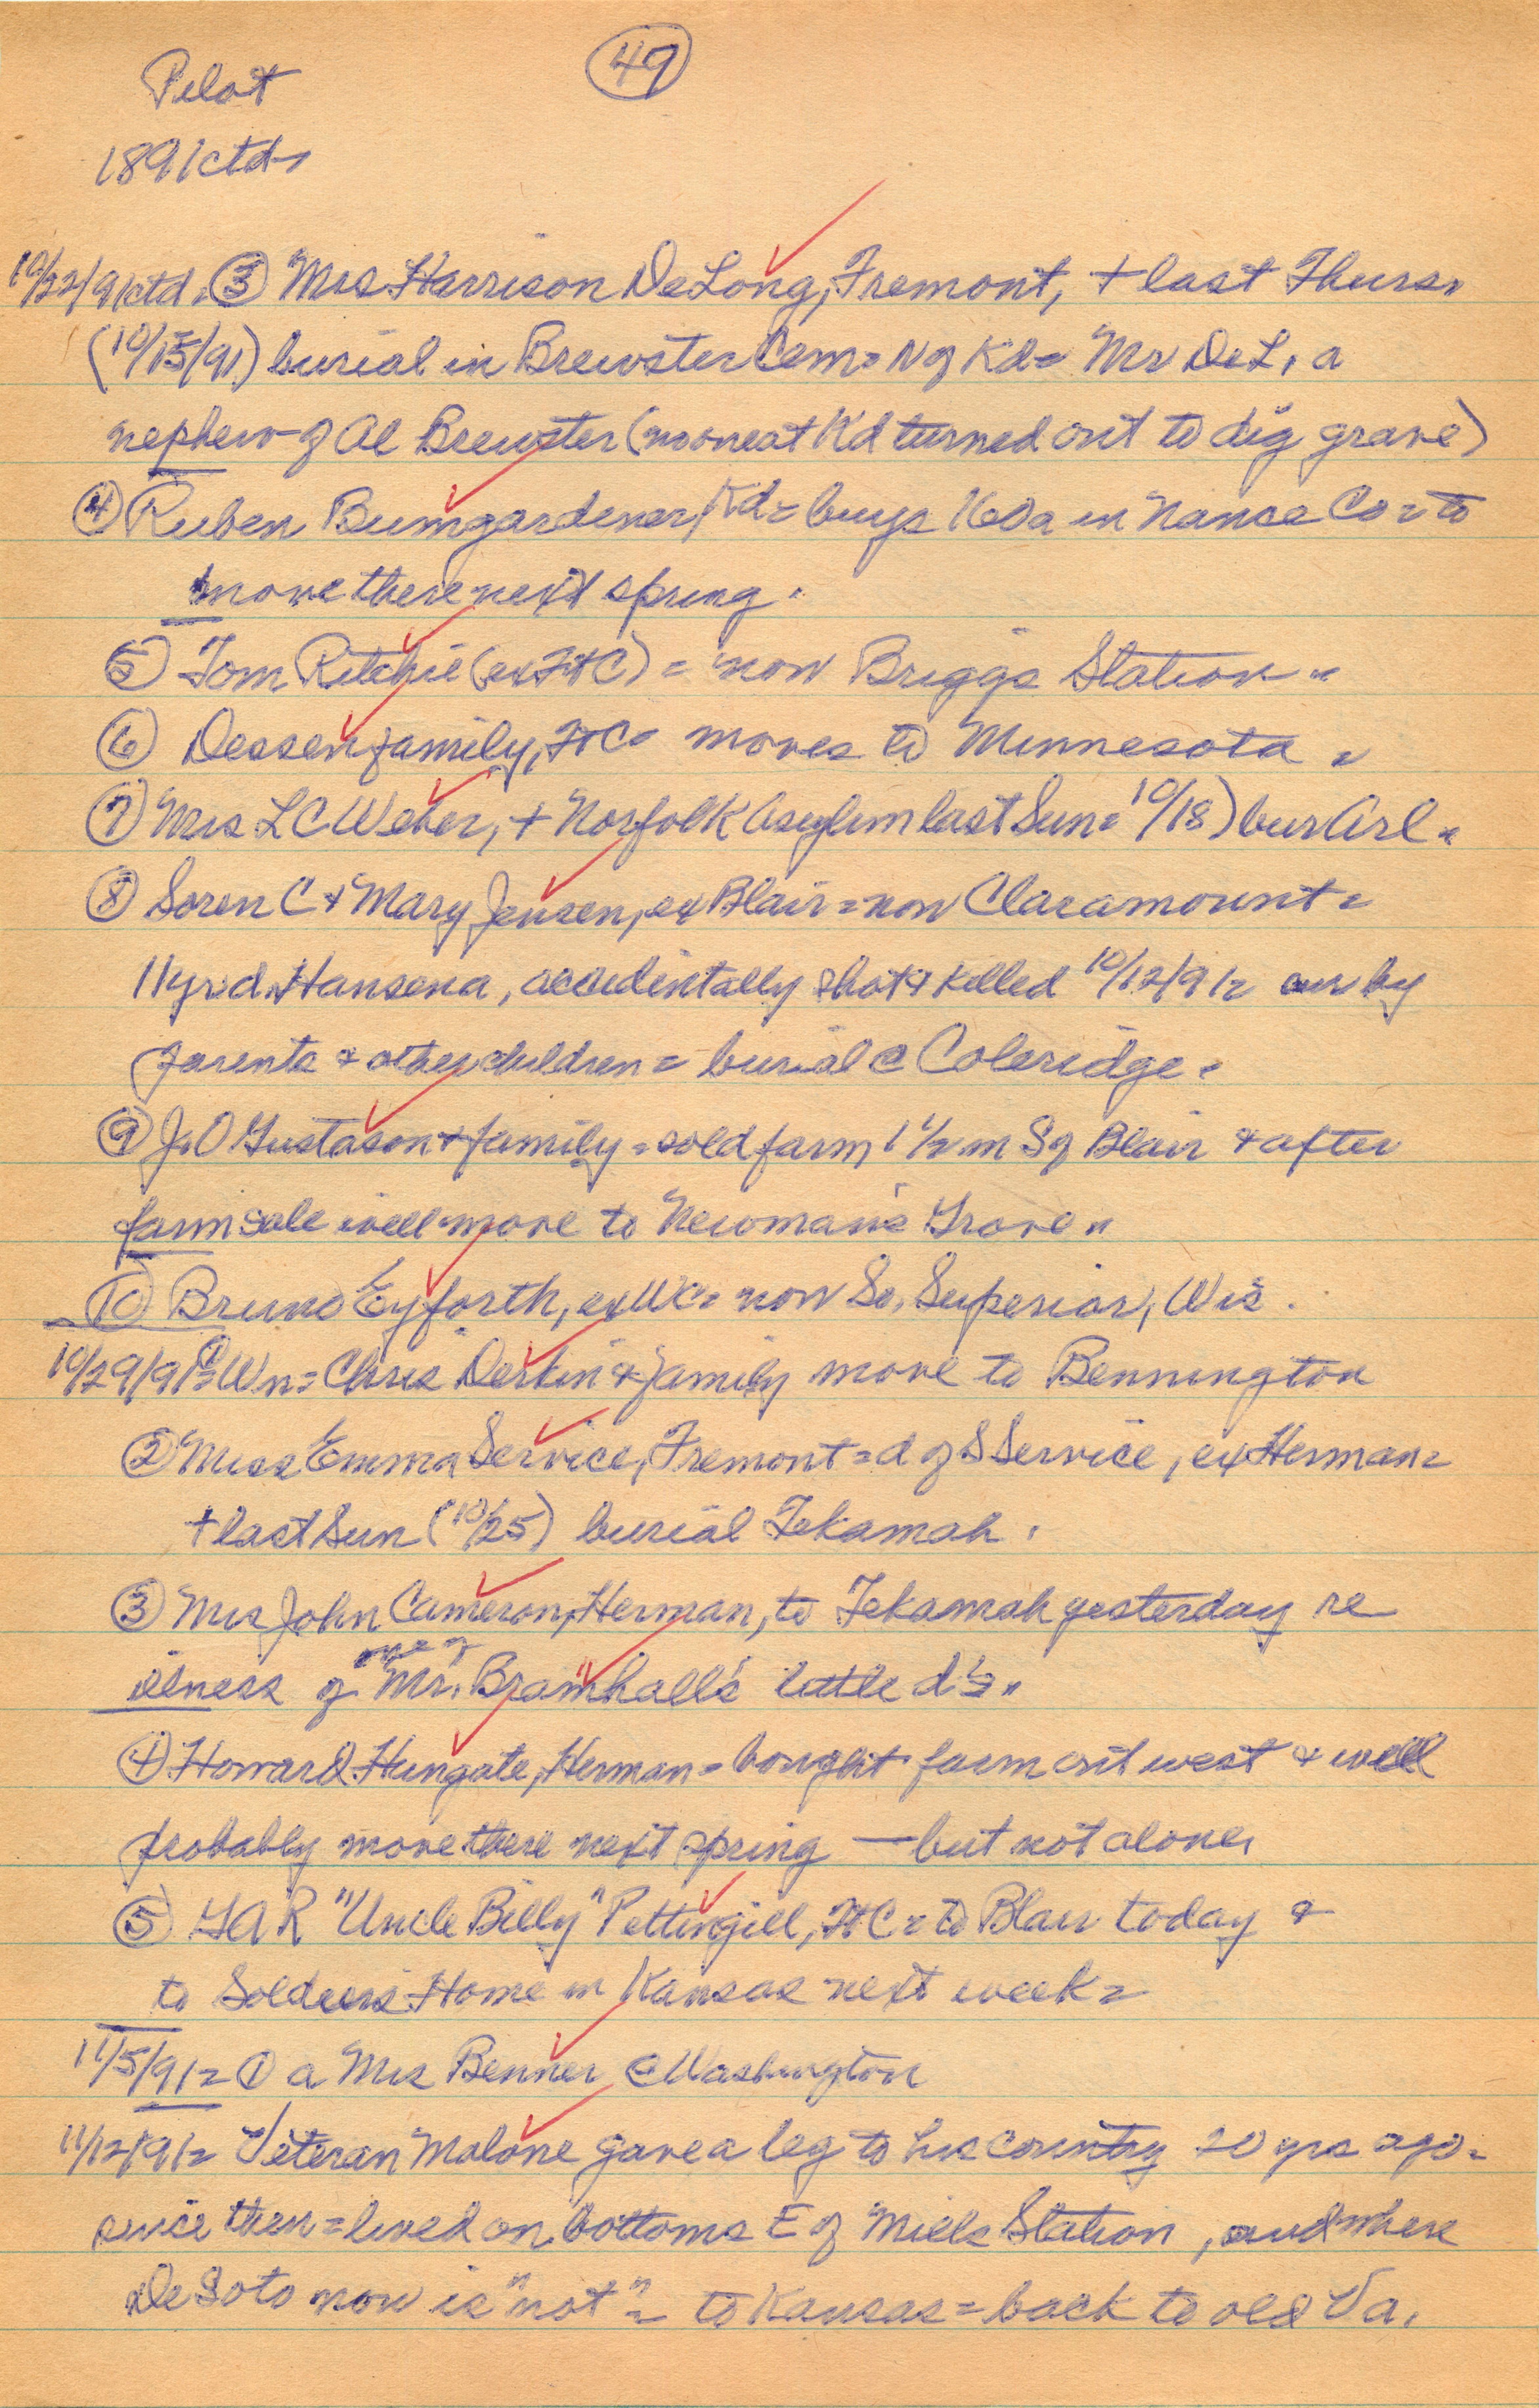 Pilot
49
1891 ctd-
10/22/91 ctd. ③ Mrs Harrison DeLong, Fremont, + last Thurs.
(10/15/91) burial in Brewster Cem = N of Kd = Mr DeL, a
nephew of Al Brewster (no one at Kd turned out to dig grave)
④ Ruben Bumgardener, Kd = buys 160a in Nance Co = to
move there next spring.
⑤ Tom Ritchie (ex Ft C) = now Briggs Station =
⑥ Dessen family, Ft C = moves to Minnesota =
⑦ Mrs L C Weber, + Norfolk Asylum last Sun = 10/18) bur Arl =
⑧ Soren C + Mary Jensen, ex Blair = now Claramount =
11 yr d. Hansena, accidentally shot & killed 10/12/91 = sur by
parents & other children = burial @ Coleridge.
⑨ J.O Gustason & family = sold farm 1 1/2 m S of Blair & after
farm sale will move to Newman's Grove =
⑩ Bruno Eyforth, ex WC = now So. Superior, Wis.
10/29/91 = ① Wn = Chris Derlin & family move to Bennington
② Miss Emma Service, Fremont = d of S Service, ex Herman =
+ last Sun (10/25) burial Tekamah.
③ Mrs John Cameron, Herman, to Tekamah yesterday re
ilness of one of Mr. Bramhall's little d's =
④ Howard Hungate, Herman = bought farm out west & will
probably move there next spring — but not alone.
⑤ GAR "Uncle Billy" Pettingill, Ft C = to Blair today &
to Soldiers Home in Kansas next week =
11/5/91 = ① a Mrs Benner @ Washington
11/12/91 = Veteran Malone gave a leg to his country 20 yrs ago =
since then = lived on bottoms E of Mills Station, and where
DeSoto now is "not" = to Kansas = back to old Va.